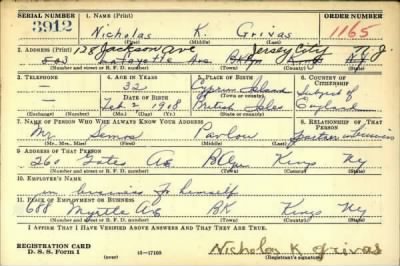 SERIAL NUMBER 1. NAME (Print) ORDER NUMBER
3912 Nicholas K. Grivas 1165
(First) (Middle) (Last)
2. ADDRESS (Print) 128 Jackson Ave Jersey City N.J
543 Lafayette Ave. BKlyn Kings N.Y.
(Number and street or R. F. D. number) (Town) (County) (State)
3. TELEPHONE 4. AGE IN YEARS 5. PLACE OF BIRTH 6. COUNTRY OF CITIZENSHIP
— 32 Cyprus Island Subject of
DATE OF BIRTH
— Feb 2 1908 British Isles England
(Exchange) (Number) (Mo.) (Day) (Yr.) (Town or county) (State or country)
7. NAME OF PERSON WHO WILL ALWAYS KNOW YOUR ADDRESS 8. RELATIONSHIP OF THAT PERSON
Mr. Pavlou Partner in business
(Mr., Mrs., Miss) (First) (Middle) (Last)
9. ADDRESS OF THAT PERSON
260 Gates Ave Kings NY
(Number and street or R. F. D. number) (Town) (County) (State)
10. EMPLOYER'S NAME
in business for himself
11. PLACE OF EMPLOYMENT OR BUSINESS
688 Myrtle Ave BK Kings NY
(Number and street or R. F. D. number) (Town) (County) (State)
I AFFIRM THAT I HAVE VERIFIED ABOVE ANSWERS AND THAT THEY ARE TRUE.
REGISTRATION CARD
D. S. S. Form 1 (over) 16—17105 Nicholas K Grivas
(Registrant's signature)